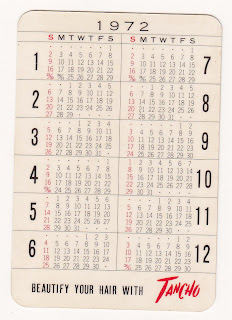 1972
S M T W T F S
1
1
2 3 4 5 6 7 8
9 10 11 12 13 14 15
16 17 18 19 20 21 22
23/30 24/31 25 26 27 28 29
2
1 2 3 4 5
6 7 8 9 10 11 12
13 14 15 16 17 18 19
20 21 22 23 24 25 26
27 28 29
3
1 2 3 4
5 6 7 8 9 10 11
12 13 14 15 16 17 18
19 20 21 22 23 24 25
26 27 28 29 30 31
4
1
2 3 4 5 6 7 8
9 10 11 12 13 14 15
16 17 18 19 20 21 22
23/30 24 25 26 27 28 29
5
1 2 3 4 5 6
7 8 9 10 11 12 13
14 15 16 17 18 19 20
21 22 23 24 25 26 27
28 29 30 31
6
1 2 3
4 5 6 7 8 9 10
11 12 13 14 15 16 17
18 19 20 21 22 23 24
25 26 27 28 29 30
S M T W T F S
7
1
2 3 4 5 6 7 8
9 10 11 12 13 14 15
16 17 18 19 20 21 22
23/30 24/31 25 26 27 28 29
8
1 2 3 4 5
6 7 8 9 10 11 12
13 14 15 16 17 18 19
20 21 22 23 24 25 26
27 28 29 30 31
9
1 2
3 4 5 6 7 8 9
10 11 12 13 14 15 16
17 18 19 20 21 22 23
24 25 26 27 28 29 30
10
1 2 3 4 5 6 7
8 9 10 11 12 13 14
15 16 17 18 19 20 21
22 23 24 25 26 27 28
29 30 31
11
1 2 3 4
5 6 7 8 9 10 11
12 13 14 15 16 17 18
19 20 21 22 23 24 25
26 27 28 29 30
12
1 2
3 4 5 6 7 8 9
10 11 12 13 14 15 16
17 18 19 20 21 22 23
24/31 25 26 27 28 29 30
BEAUTIFY YOUR HAIR WITH TANCHO